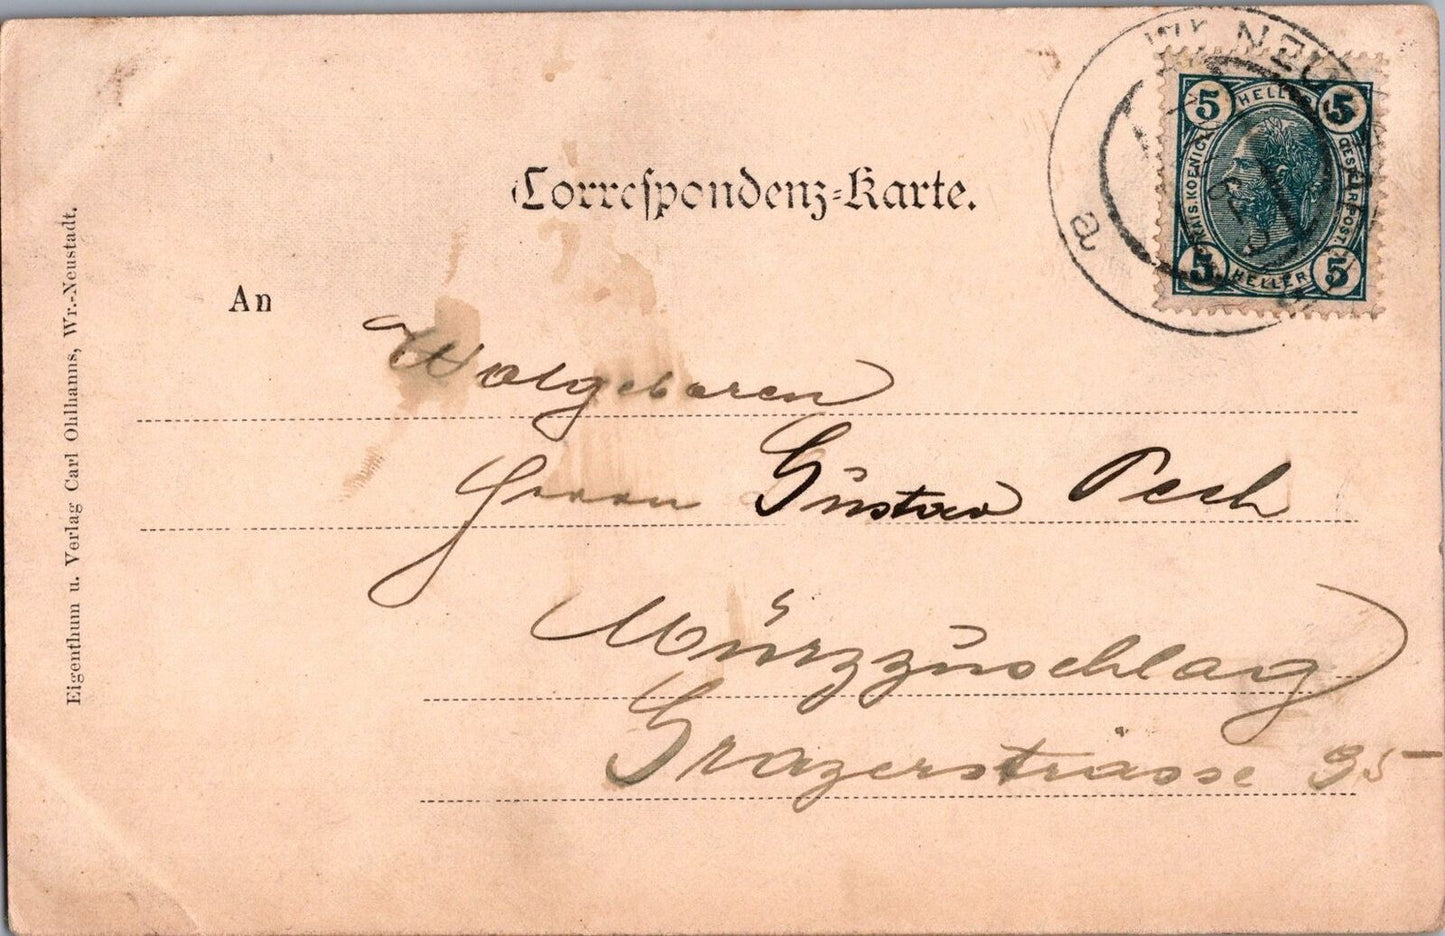 WR. NEUS
a
5 HELLER 5
KAIS. KOENIGL. OESTERR. POST.
5 HELLER 5
Correspondenz-Karte.
An
Wolgeboren
Herrn Gustav Pech
Mürzzuschlag
Grazerstrasse 35
Eigenthum u. Verlag Carl Ohlhanns, Wr.-Neustadt.